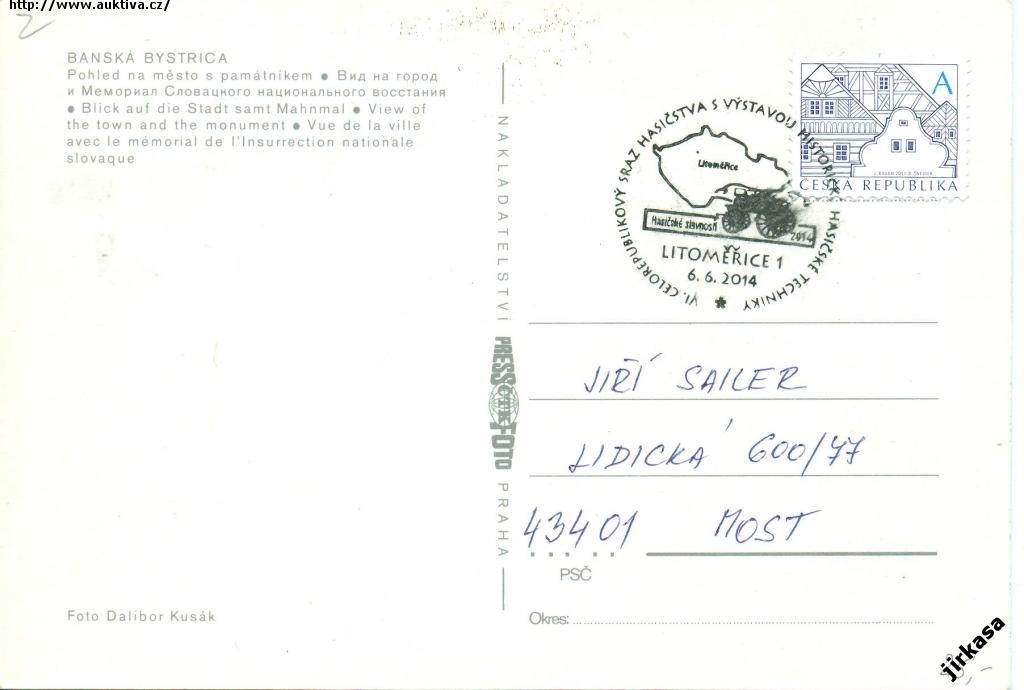 http://www.auktiva.cz/
2
BANSKÁ BYSTRICA
Pohled na město s památníkem ● Вид на город
и Мемориал Словацкого национального восстания
● Blick auf die Stadt samt Mahnmal ● View of
the town and the monument ● Vue de la ville
avec le mémorial de l'Insurrection nationale
slovaque
Foto Dalibor Kusák
NAKLADATELSTVÍ
PRESSFOTO
PRAHA
A
ČESKÁ REPUBLIKA
VI. CELOREPUBLIKOVÝ SRAZ HASIČSTVA S VÝSTAVOU HISTORICKÉ HASIČSKÉ TECHNIKY
Litoměřice
Hasičské slavnosti
2014
LITOMĚŘICE 1
6.6.2014
JIŘÍ SAILER
LIDICKÁ 600/77
43401 MOST
PSČ
Okres:
jirkasa